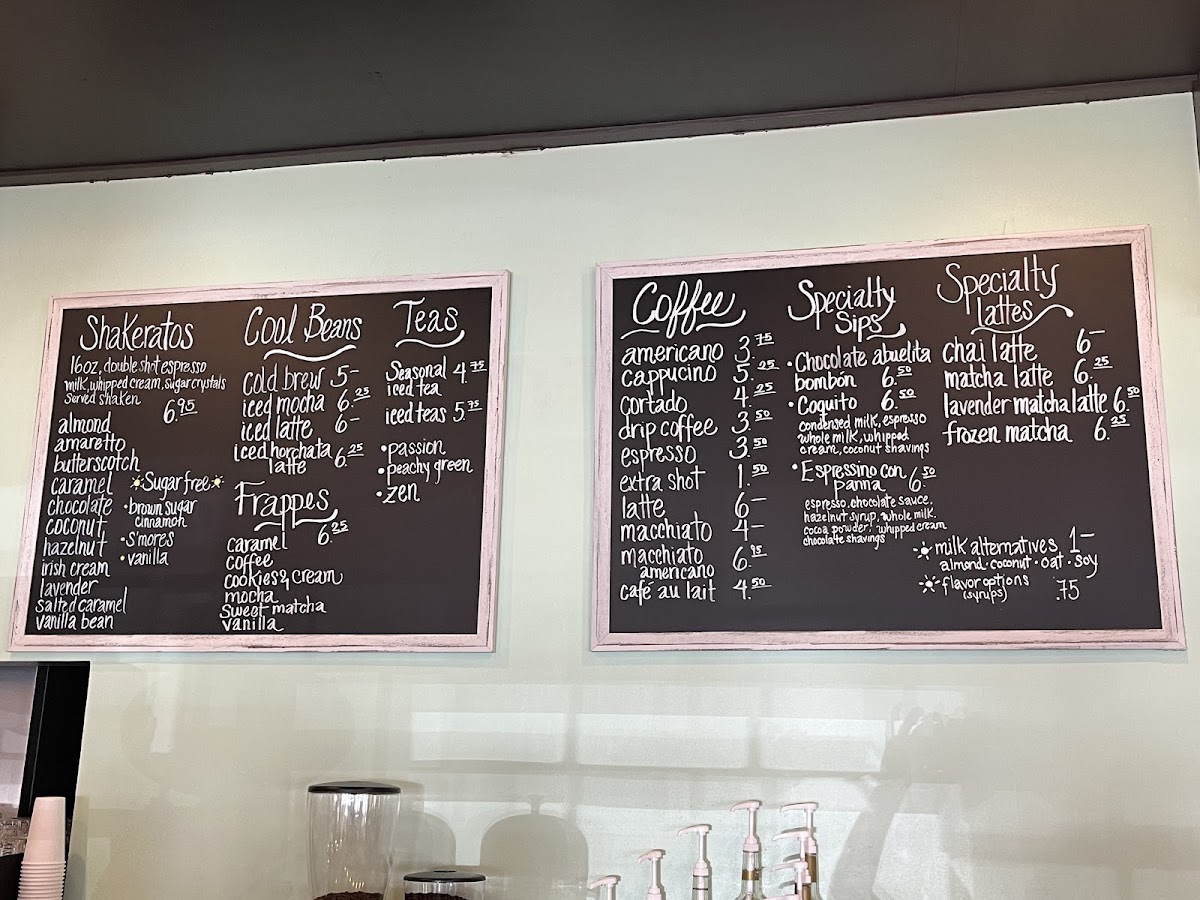 Shakeratos
16oz, double shot espresso
milk, whipped cream, sugar crystals
Served shaken
6.95
almond
amaretto
butterscotch
caramel
chocolate
coconut
hazelnut
irish cream
lavender
salted caramel
vanilla bean
Sugar free
• brown sugar
cinnamon
• s'mores
• vanilla
Cool Beans
cold brew 5-
iced mocha 6.25
iced latte 6-
iced horchata
latte 6.25
Frappes
6.25
caramel
coffee
cookies & cream
mocha
sweet matcha
vanilla
Teas
Seasonal 4.75
iced tea
iced teas 5.75
• passion
• peachy green
• zen
Coffee
americano 3.75
cappucino 5.25
cortado 4.25
drip coffee 3.50
espresso 3.50
extra shot 1.50
latte 6-
macchiato 4-
macchiato 6.95
americano
cafe au lait 4.50
Specialty
Sips
• Chocolate abuelita
bombón 6.50
• Coquito 6.50
condensed milk, espresso
whole milk, whipped
cream, coconut shavings
• Espressino con
panna 6.50
espresso, chocolate sauce,
hazelnut syrup, whole milk,
cocoa powder, whipped cream
chocolate shavings
Specialty
Lattes
chai latte 6-
matcha latte 6.25
lavender matcha latte 6.50
frozen matcha 6.25
milk alternatives 1-
almond • coconut • oat • soy
flavor options .75
(syrups)